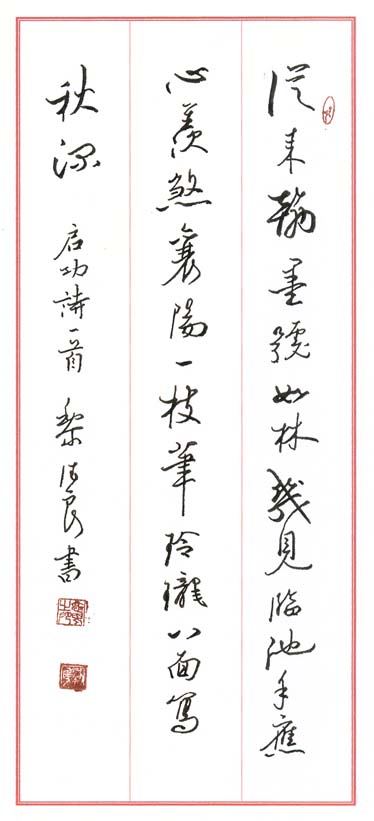 從来翰墨號如林幾見臨池手應
心羨煞襄陽一枝筆玲瓏八面寫
秋深 启功詩一首 黎 良書